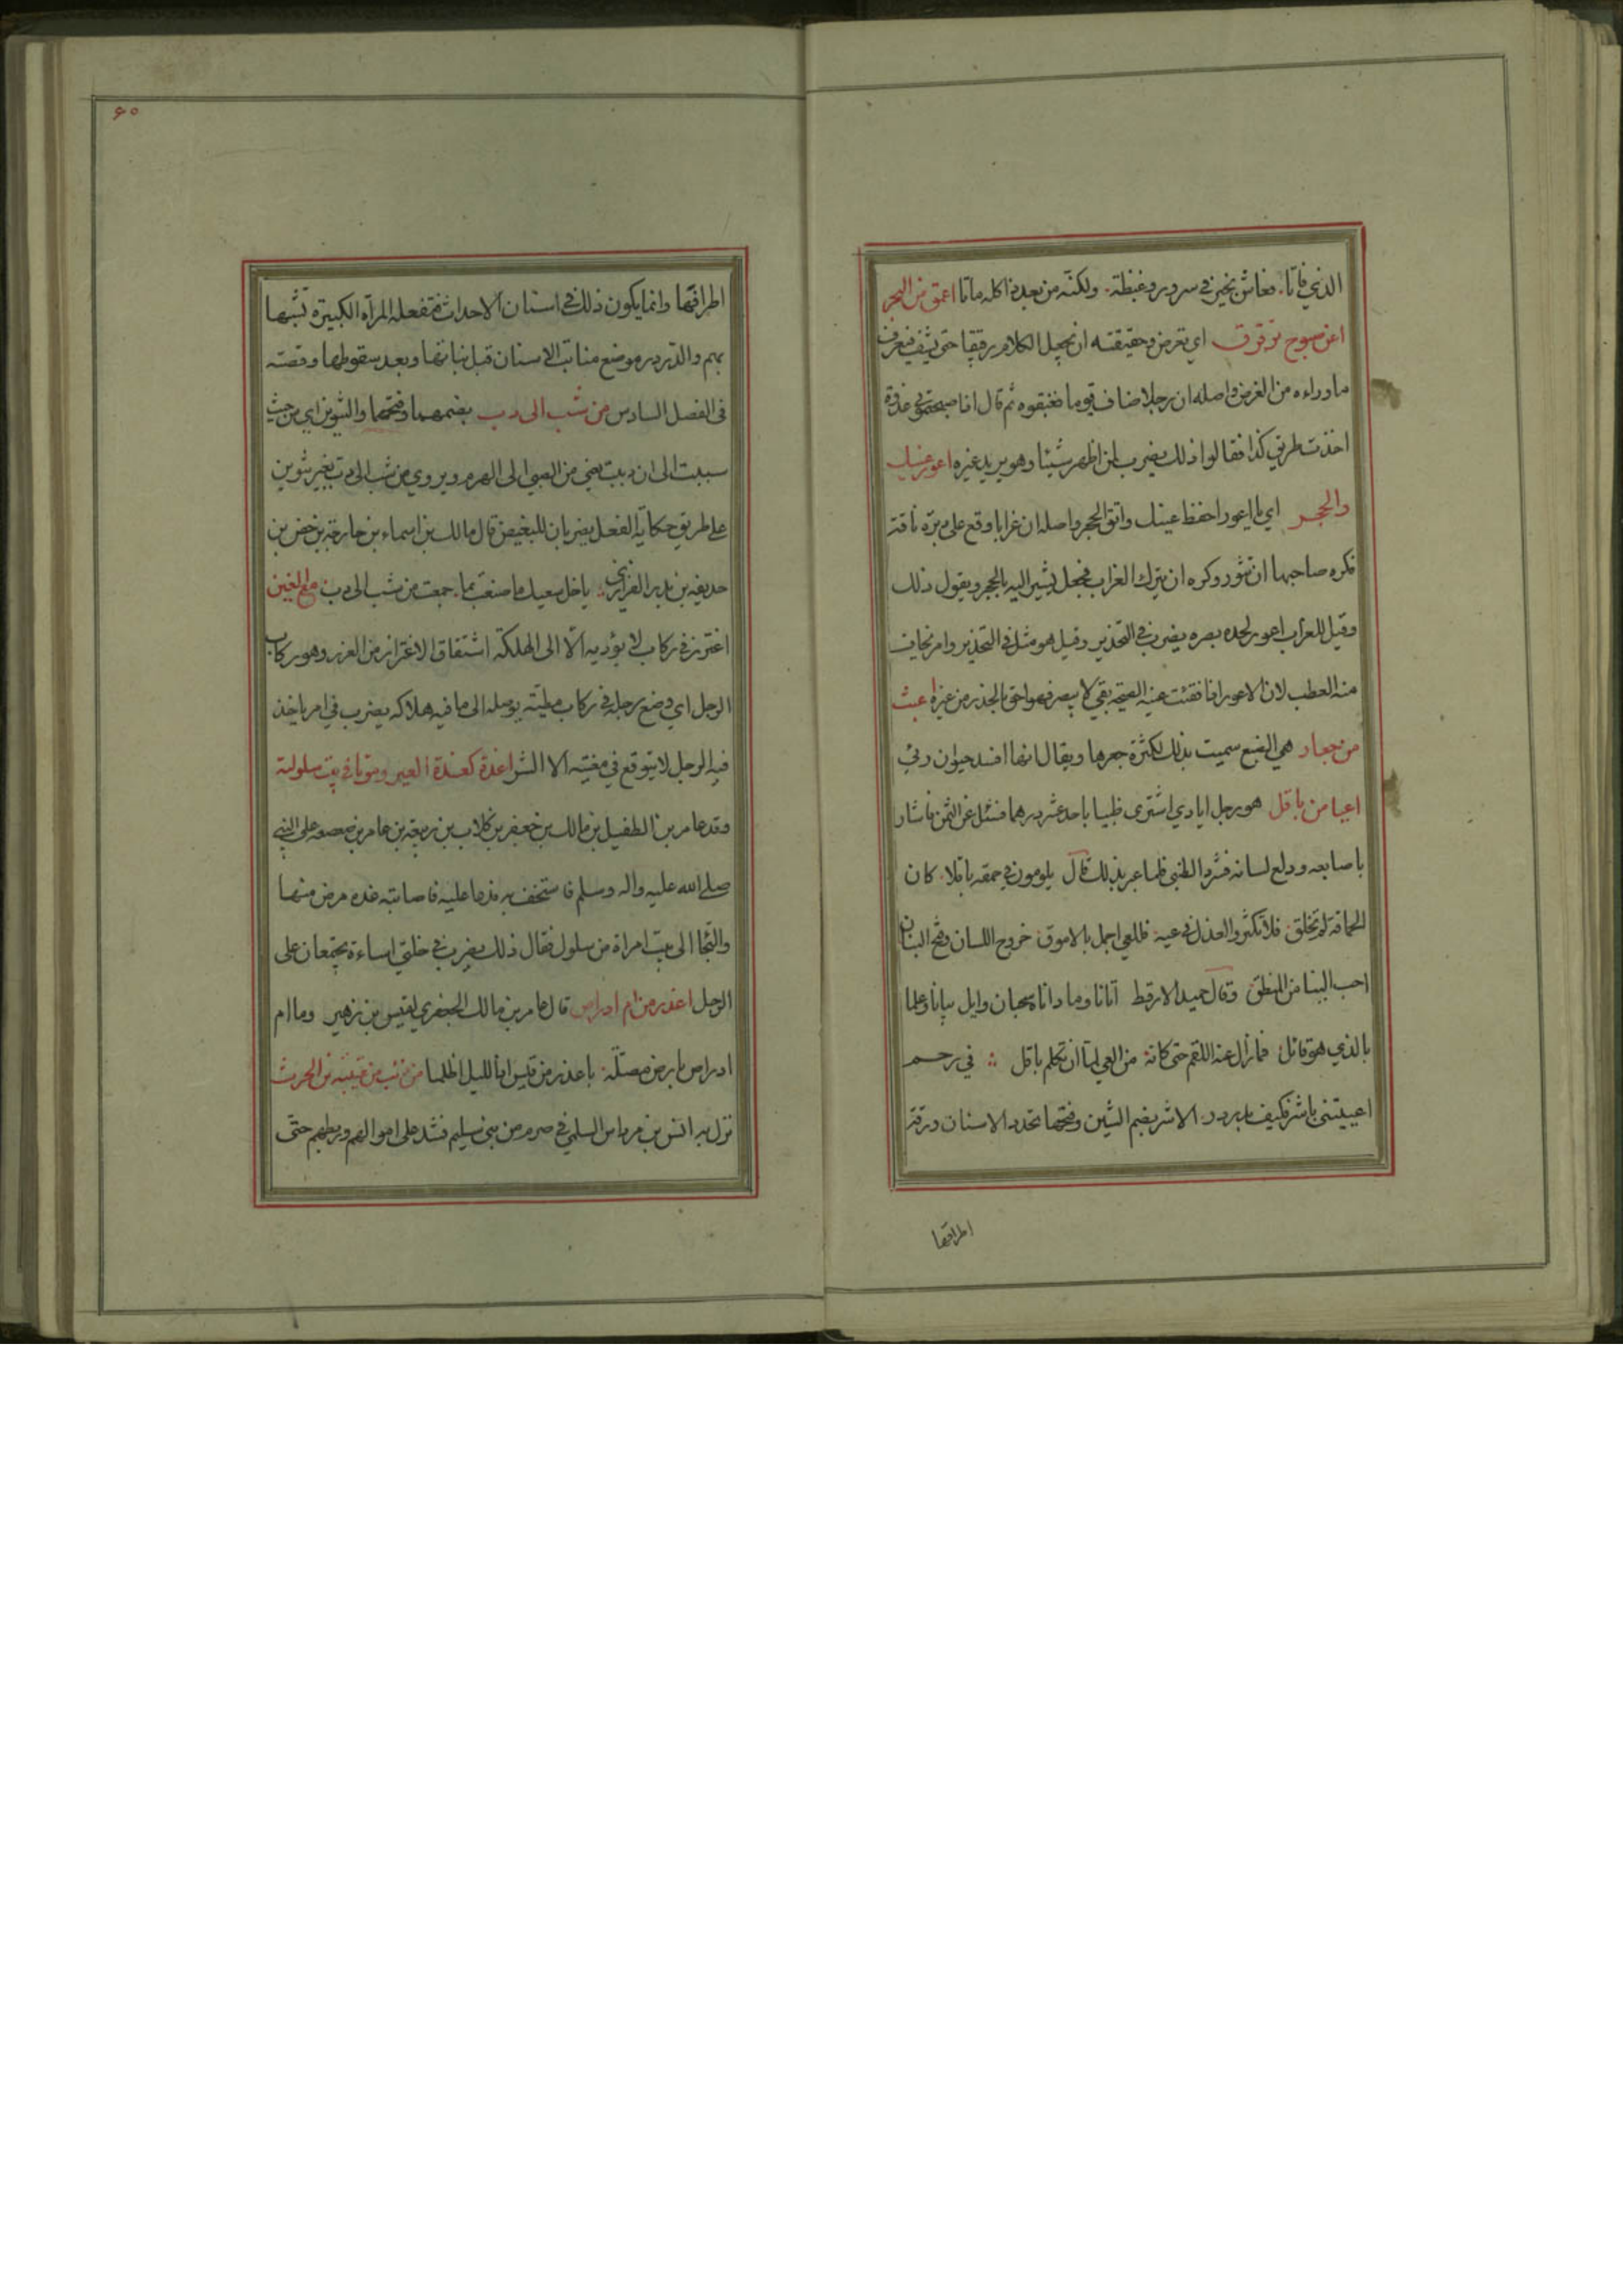 الذي فاتا. فعاش بخير في سرور وغبطة. ولكنه من بعد ذا كله ماتا اعمق من البحر
اعن صبوح ترقرق اي تعرض وحقيقته ان تجعل الكلام رقيقا حتى يشف فيعرف
ما وراءه من الغرض واصله ان رجلا ضاف قوما فغبقوه ثم قال اذا صبحتموني غدوة
اخذت طريق كذا فقالوا ذلك يضرب لمن اظهر شيئا وهو يريد غيره اعور عينك
والحجر اي يا اعور احفظ عينك واتق الحجر واصله ان غرابا وقع على دبرة ناقة
فكره صاحبها ان تثور وكره ان يترك الغراب فجعل يشير اليه بالحجر ويقول ذلك
وقيل للغراب اعور لحده بصره يضرب في التحذير وقيل هو مثل في التحذير وامر يخاف
منه العطب لان الاعور اذا فقئت عينه الصحيحة بقي لا يبصر فهو احق بالحذر من غيره اعبث
من جعار هي الضبع سميت بذلك لكثرة جعرها ويقال انها افسد حيوان رئي
اعيا من باقل هو رجل ايادي اشترى ظبيا باحد عشر درهما فسئل عن الثمن فاشار
باصابعه ودلع لسانه فشرد الظبي فلما عير بذلك قال يلومون في حمقه باقلا. كان
الحماقة لم تخلق. فلا تكثروا العذل في عيه. فللعي اجمل بالاموق. خروج اللسان وفتح البنان
احب الينا من المنطق وقال حميد الارقط اتانا وما داناه سحبان وايل بيانا وعلما
بالذي هو قائل. فما زال عنه اللقم حتى كانه. من العي لما ان تكلم باقل في رحم
اعييتني باشر فكيف بدردر. الاشر بضم الشين وفتحها تحدد الاسنان ورقة
اطرافها
۶۰
اطرافها وانما يكون ذلك في اسنان الاحداث فتفعله المرأة الكبيرة تشبها
بهم والدردر موضع منابت الاسنان قبل نباتها وبعد سقوطها وقصته
في الفصل السادس من شب الى دب بضمهما وفتحها والتنوين اي من حيث
شببت الى ان دببت يعني من الصبي الى الهرم ويروي من شب الى دب بغير تنوين
على طريق حكاية الفعل يضربان للبغيض قال مالك بن اسماء بن خارجة بن حضن بن
حذيفة بن بدر الفزاري يا خل سعيك ما صنعت بما. جمعت من شب الى دب مع الغين
اغترز في ركاب لا يؤديه الا الى الهلكة اشتقاق الاغتراز من الغرز وهو ركاب
الرجل اي وضع رجله في ركاب مطيته يوصله الى ما فيه هلاكه يضرب في امر ياخذ
فيه الرجل لا يتوقع في مغبته الا الشر اغدة كغدة البعير وموتا في بيت سلولية
وفد عامر بن الطفيل بن مالك بن جعفر بن كلاب بن ربيعة بن عامر بن صعصعه على النبي
صلى الله عليه واله وسلم فاستخف به فدعا عليه فاصابته غده مرض منها
والتجا الى بيت امراة من سلول فقال ذلك يضرب في خلتي اساءة يجتمعان على
الرجل اغدر من ام ادراص قال عامر بن مالك الجعفري لقيس بن زهير وما ام
ادراص بارض مضلة. باغدر من قيس اذا الليل اظلما من عتيبة بن الحرث
نزل به انس بن مرداس السلمي في صرم من بني سليم فشد على اموالهم وربطهم حتى